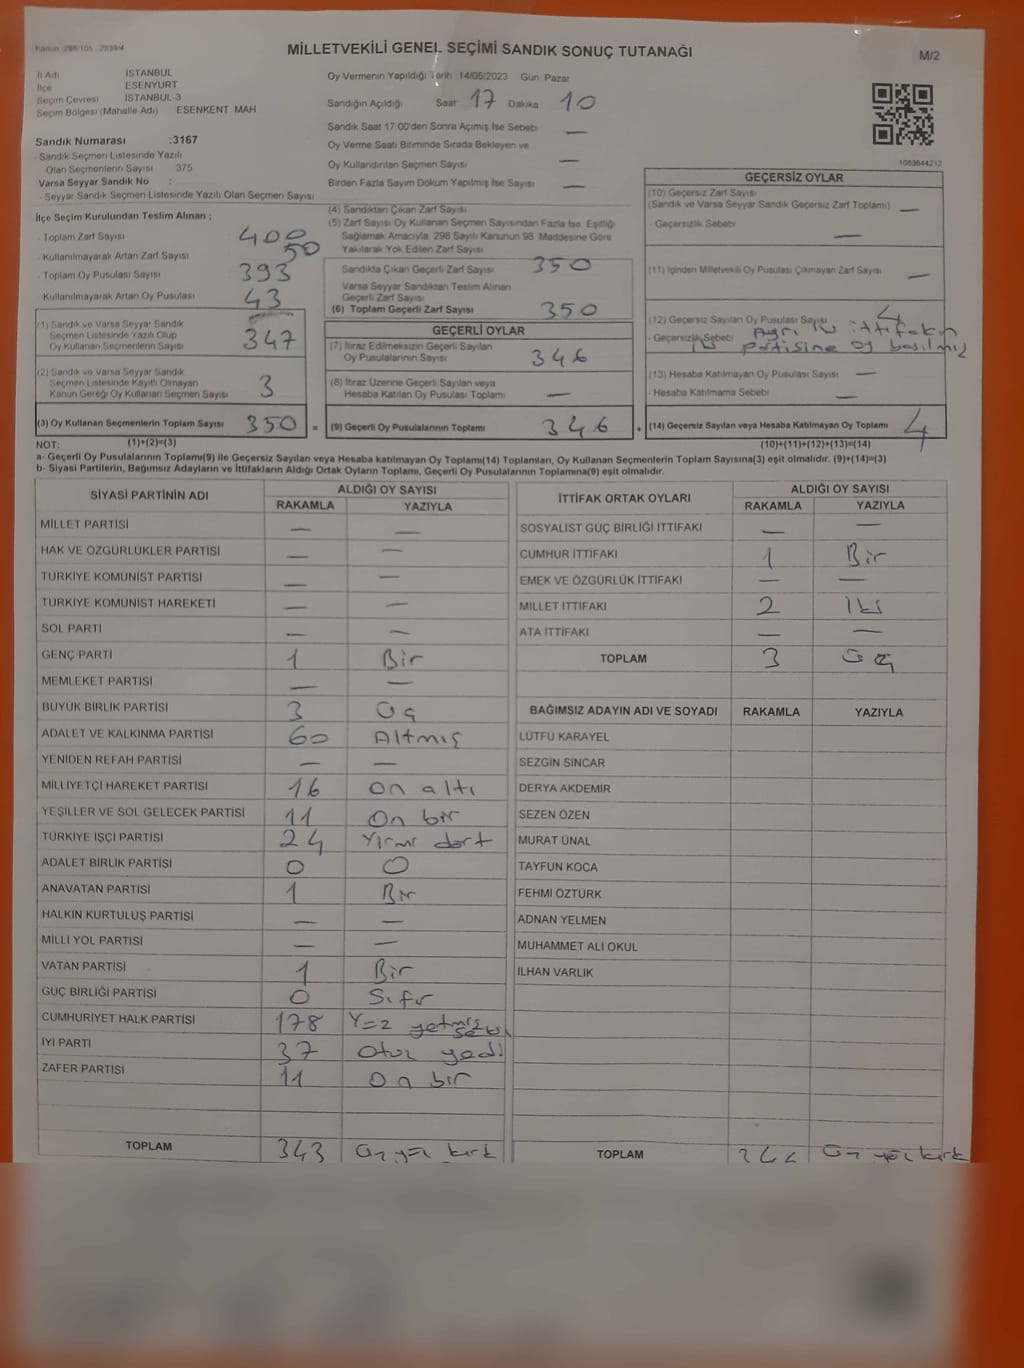 Kanun: 298/105 , 2839/4
MİLLETVEKİLİ GENEL SEÇİMİ SANDIK SONUÇ TUTANAĞI
M/2
İl Adı İSTANBUL
İlçe ESENYURT
Seçim Çevresi İSTANBUL-3
Seçim Bölgesi (Mahalle Adı) ESENKENT MAH
Sandık Numarası :3167
- Sandık Seçmen Listesinde Yazılı
Olan Seçmenlerin Sayısı 375
Varsa Seyyar Sandık No :
- Seyyar Sandık Seçmen Listesinde Yazılı Olan Seçmen Sayısı
İlçe Seçim Kurulundan Teslim Alınan ;
- Toplam Zarf Sayısı 400
- Kullanılmayarak Artan Zarf Sayısı 50
- Toplam Oy Pusulası Sayısı 393
- Kullanılmayarak Artan Oy Pusulası 43
(1) Sandık ve Varsa Seyyar Sandık
Seçmen Listesinde Yazılı Olup
Oy Kullanan Seçmenlerin Sayısı 347
(2) Sandık ve Varsa Seyyar Sandık
Seçmen Listesinde Kayıtlı Olmayan
Kanun Gereği Oy Kullanan Seçmen Sayısı 3
(3) Oy Kullanan Seçmenlerin Toplam Sayısı 350 =
Oy Vermenin Yapıldığı Tarih: 14/05/2023 Gün: Pazar
Sandığın Açıldığı Saat 17 Dakika 10
Sandık Saat 17:00'den Sonra Açılmış İse Sebebi —
Oy Verme Saati Bitiminde Sırada Bekleyen ve
Oy Kullandırılan Seçmen Sayısı —
Birden Fazla Sayım Döküm Yapılmış İse Sayısı —
(4) Sandıktan Çıkan Zarf Sayısı
(5) Zarf Sayısı Oy Kullanan Seçmen Sayısından Fazla İse, Eşitliği
Sağlamak Amacıyla, 298 Sayılı Kanunun 98. Maddesine Göre
Yakılarak Yok Edilen Zarf Sayısı
Sandıkta Çıkan Geçerli Zarf Sayısı 350
Varsa Seyyar Sandıktan Teslim Alınan
Geçerli Zarf Sayısı
(6) Toplam Geçerli Zarf Sayısı 350
GEÇERLİ OYLAR
(7) İtiraz Edilmeksizin Geçerli Sayılan
Oy Pusulalarının Sayısı 346
(8) İtiraz Üzerine Geçerli Sayılan veya
Hesaba Katılan Oy Pusulası Toplamı —
(9) Geçerli Oy Pusulalarının Toplamı 346 +
1083644212
GEÇERSİZ OYLAR
(10) Geçersiz Zarf Sayısı
(Sandık ve Varsa Seyyar Sandık Geçersiz Zarf Toplamı) —
- Geçersizlik Sebebi —
(11) İçinden Milletvekili Oy Pusulası Çıkmayan Zarf Sayısı —
(12) Geçersiz Sayılan Oy Pusulası Sayısı 4
- Geçersizlik Sebebi Ayrı iki ittifakın
iki partisine oy basılmış
(13) Hesaba Katılmayan Oy Pusulası Sayısı —
- Hesaba Katılmama Sebebi —
(14) Geçersiz Sayılan veya Hesaba Katılmayan Oy Toplamı 4
NOT: (1)+(2)=(3) (10)+(11)+(12)+(13)=(14)
a- Geçerli Oy Pusulalarının Toplamı(9) ile Geçersiz Sayılan veya Hesaba katılmayan Oy Toplamı(14) Toplamları, Oy Kullanan Seçmenlerin Toplam Sayısına(3) eşit olmalıdır. (9)+(14)=(3)
b- Siyasi Partilerin, Bağımsız Adayların ve İttifakların Aldığı Ortak Oyların Toplamı, Geçerli Oy Pusulalarının Toplamına(9) eşit olmalıdır.
SİYASİ PARTİNİN ADI ALDIĞI OY SAYISI
RAKAMLA YAZIYLA
MİLLET PARTİSİ — —
HAK VE ÖZGÜRLÜKLER PARTİSİ — —
TÜRKİYE KOMÜNİST PARTİSİ — —
TÜRKİYE KOMÜNİST HAREKETİ — —
SOL PARTİ — —
GENÇ PARTİ 1 Bir
MEMLEKET PARTİSİ — —
BÜYÜK BİRLİK PARTİSİ 3 Üç
ADALET VE KALKINMA PARTİSİ 60 Altmış
YENİDEN REFAH PARTİSİ — —
MİLLİYETÇİ HAREKET PARTİSİ 16 On altı
YEŞİLLER VE SOL GELECEK PARTİSİ 11 On bir
TÜRKİYE İŞÇİ PARTİSİ 24 Yirmi dört
ADALET BİRLİK PARTİSİ 0 0
ANAVATAN PARTİSİ 1 Bir
HALKIN KURTULUŞ PARTİSİ — —
MİLLİ YOL PARTİSİ — —
VATAN PARTİSİ 1 Bir
GÜÇ BİRLİĞİ PARTİSİ 0 Sıfır
CUMHURİYET HALK PARTİSİ 178 Yüz yetmiş sekiz
İYİ PARTİ 37 Otuz yedi
ZAFER PARTİSİ 11 On bir
TOPLAM 343 Üç yüz kırk
İTTİFAK ORTAK OYLARI ALDIĞI OY SAYISI
RAKAMLA YAZIYLA
SOSYALİST GÜÇ BİRLİĞİ İTTİFAKI — —
CUMHUR İTTİFAKI 1 Bir
EMEK VE ÖZGÜRLÜK İTTİFAKI — —
MİLLET İTTİFAKI 2 İki
ATA İTTİFAKI — —
TOPLAM 3 Üç
BAĞIMSIZ ADAYIN ADI VE SOYADI RAKAMLA YAZIYLA
LÜTFÜ KARAYEL
SEZGİN SİNCAR
DERYA AKDEMİR
SEZEN ÖZEN
MURAT ÜNAL
TAYFUN KOCA
FEHMİ ÖZTÜRK
ADNAN YELMEN
MUHAMMET ALİ OKUL
İLHAN VARLIK
TOPLAM 346 Üç yüz kırk